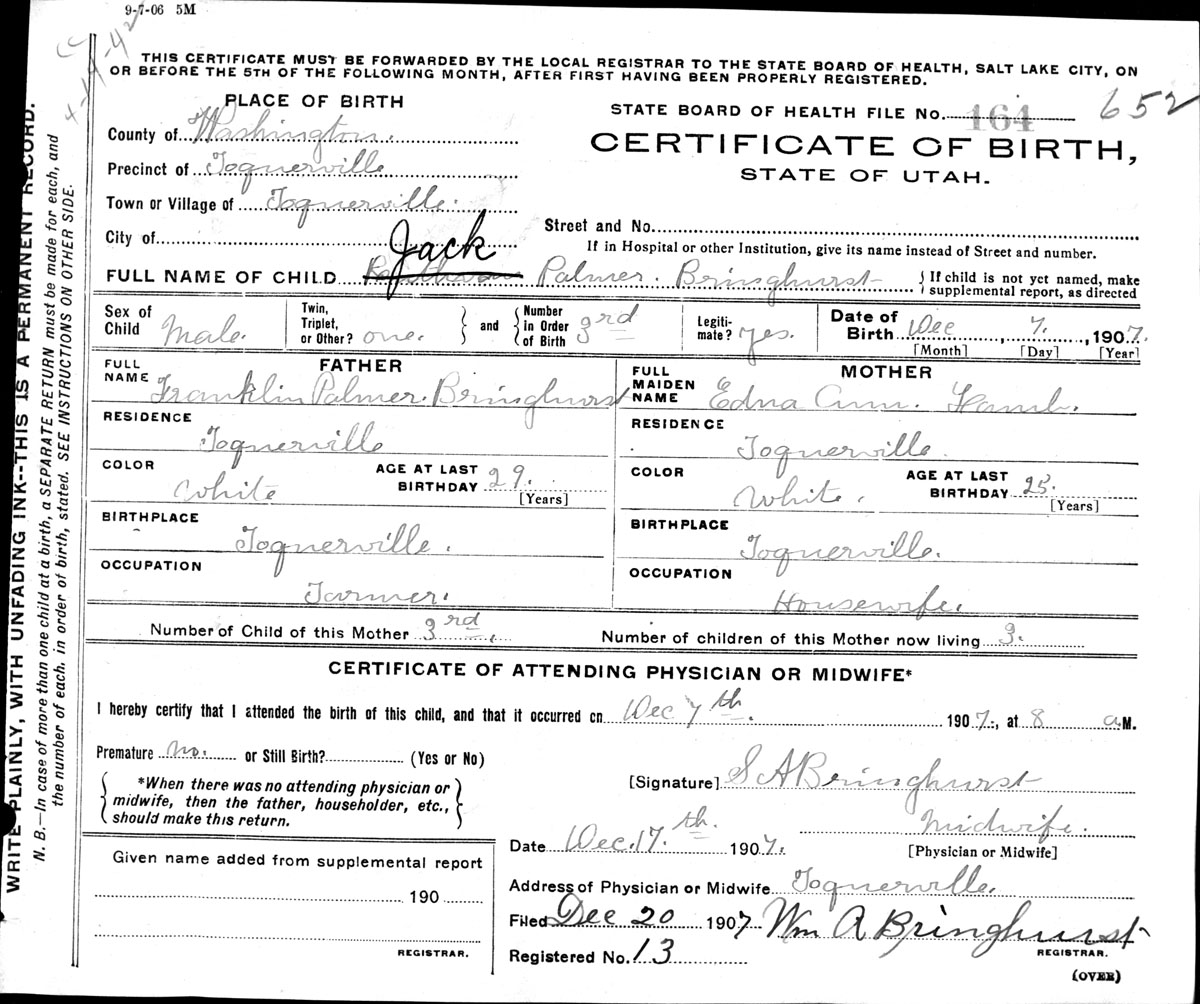 9-7-06 5M
CC
4-14-42
THIS CERTIFICATE MUST BE FORWARDED BY THE LOCAL REGISTRAR TO THE STATE BOARD OF HEALTH, SALT LAKE CITY, ON
OR BEFORE THE 5TH OF THE FOLLOWING MONTH, AFTER FIRST HAVING BEEN PROPERLY REGISTERED.
WRITE PLAINLY, WITH UNFADING INK--THIS IS A PERMANENT RECORD.
N. B.—In case of more than one child at a birth, a SEPARATE RETURN must be made for each, and
the number of each, in order of birth, stated. SEE INSTRUCTIONS ON OTHER SIDE.
PLACE OF BIRTH
County of Washington.
Precinct of Toquerville
Town or Village of Toquerville.
City of
STATE BOARD OF HEALTH FILE No. 164 652
CERTIFICATE OF BIRTH,
STATE OF UTAH.
Street and No.
If in Hospital or other Institution, give its name instead of Street and number.
FULL NAME OF CHILD Jack Palmer. Bringhurst { If child is not yet named, make
supplemental report, as directed
Sex of Child Male. Twin, Triplet, or Other? one. } and { Number in Order of Birth 3rd Legiti-mate? yes. Date of Birth Dec 7., 1907.
[Month] [Day] [Year]
FATHER
FULL NAME Franklin Palmer. Bringhurst
RESIDENCE
Toquerville
COLOR White AGE AT LAST BIRTHDAY 29. [Years]
BIRTHPLACE
Toquerville.
OCCUPATION
Farmer.
MOTHER
FULL MAIDEN NAME Edna Ann. Lamb.
RESIDENCE
Toquerville.
COLOR White. AGE AT LAST BIRTHDAY 25. [Years]
BIRTHPLACE
Toquerville.
OCCUPATION
Housewife.
Number of Child of this Mother 3rd. Number of children of this Mother now living 3.
CERTIFICATE OF ATTENDING PHYSICIAN OR MIDWIFE*
I hereby certify that I attended the birth of this child, and that it occurred on Dec 7th. 1907., at 8 a M.
Premature no. or Still Birth? (Yes or No)
{ *When there was no attending physician or
midwife, then the father, householder, etc.,
should make this return. }
[Signature] S A Bringhurst
Midwife.
[Physician or Midwife]
Date Dec. 17.th. 1907.
Address of Physician or Midwife Toquerville.
Filed Dec 20 1907 Wm A Bringhurst
REGISTRAR.
Registered No. 13
(OVER)
Given name added from supplemental report
190
REGISTRAR.